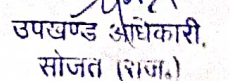 उपखण्ड अधिकारी,
सोजत (राज॰)